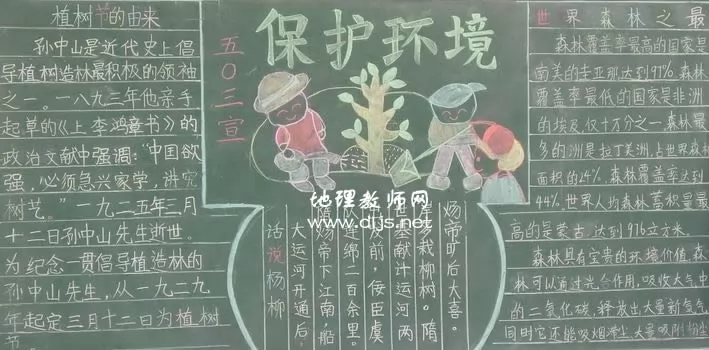 植树节的由来
孙中山是近代史上倡
导植树造林最积极的领袖
之一。一八九三年他亲手
起草的《上李鸿章书》的
政治文献中强调:“中国欲
强，必须急兴农学，讲究
树艺。”一九二五年三月
十二日孙中山先生逝世。
为纪念一贯倡导植造林的
孙中山先生，从一九二九
年起定三月十二日为植树
节。
五〇三宣
保护环境
地理教师网
www.dljs.net
炀帝旷后大喜。
栽柳树。隋
世基献计运河两
及前，佞臣虞
绵二百余里。
隋炀帝下江南，船
大运河开通后，
话说杨柳
世界森林之最
森林覆盖率最高的国家是
南美的圭亚那达到97%森林
覆盖率最低的国家是非洲
的埃及仅十万分之一森林最
多的洲是拉丁美洲，占世界森林
面积的24%，森林覆盖率达到
44%世界人均森林蓄积量最
高的是蒙古，达到976立方米。
森林具有宝贵的环境价值，森
林可以通过光合作用，吸收大气中
的二氧化碳，释放出大量新氧气
同时它还能吸烟滞尘大量吸附粉尘